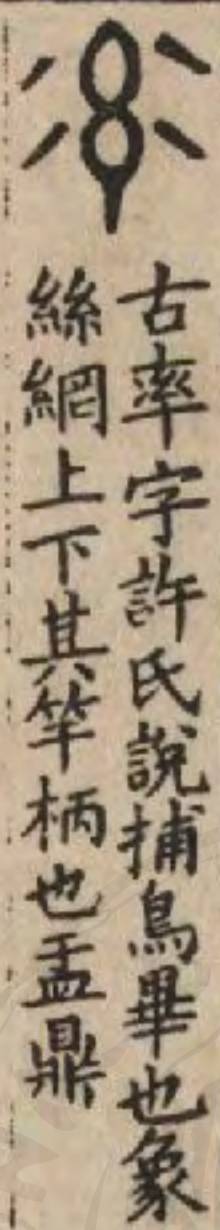 古率字許氏說捕鳥畢也象
絲網上下其竿柄也盂鼎